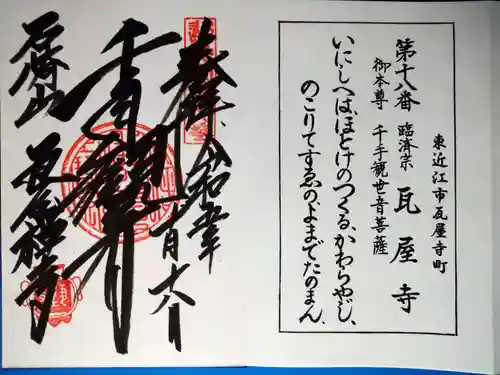 東近江市瓦屋寺町
第十八番 臨済宗 瓦屋寺
御本尊 千手觀世音菩薩
いにしへはほとけのつくる、かわらやじ、
のこりてすゑのよまでたのまん、
奉拝 令和
石崎山 瓦屋禅寺